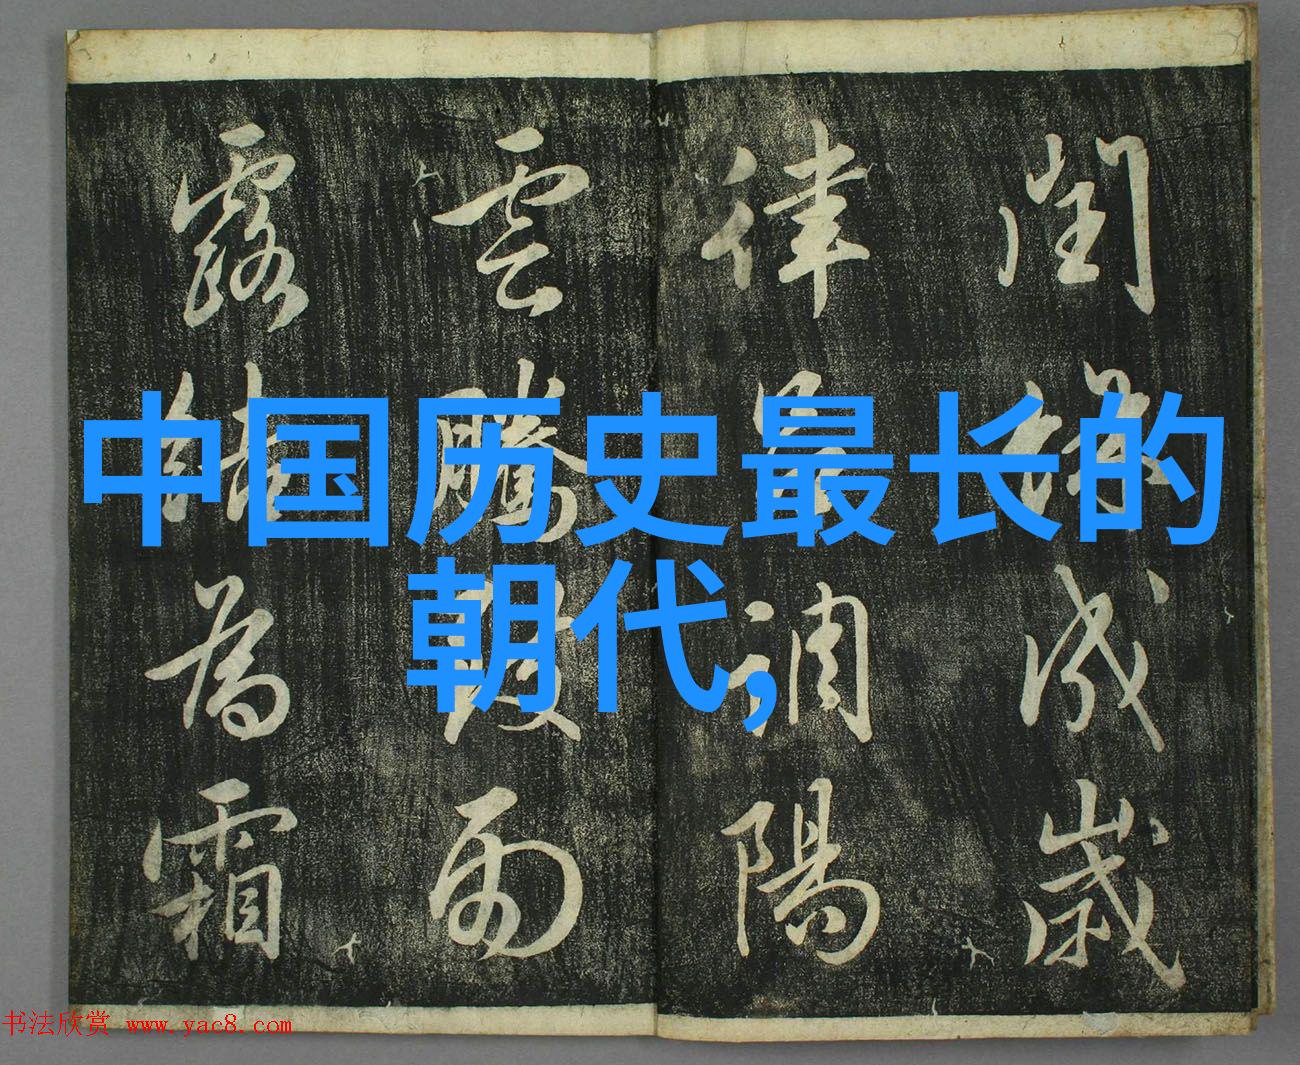 中国历史最长的
朝代,
閏餘成歲
律呂調陽
雲騰致雨
露結為霜
书法欣赏 www.yac8.com